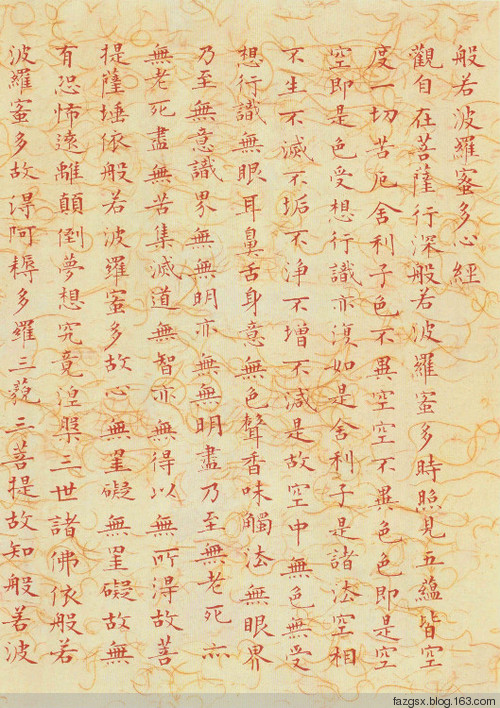 般若波羅蜜多心經
觀自在菩薩行深般若波羅蜜多時照見五蘊皆空
度一切苦厄舍利子色不異空空不異色色即是空
空即是色受想行識亦復如是舍利子是諸法空相
不生不滅不垢不淨不增不減是故空中無色無受
想行識無眼耳鼻舌身意無色聲香味觸法無眼界
乃至無意識界無無明亦無無明盡乃至無老死亦
無老死盡無苦集滅道無智亦無得以無所得故菩
提薩埵依般若波羅蜜多故心無罣礙無罣礙故無
有恐怖遠離顛倒夢想究竟涅槃三世諸佛依般若
波羅蜜多故得阿耨多羅三藐三菩提故知般若波
fazgsx.blog.163.com